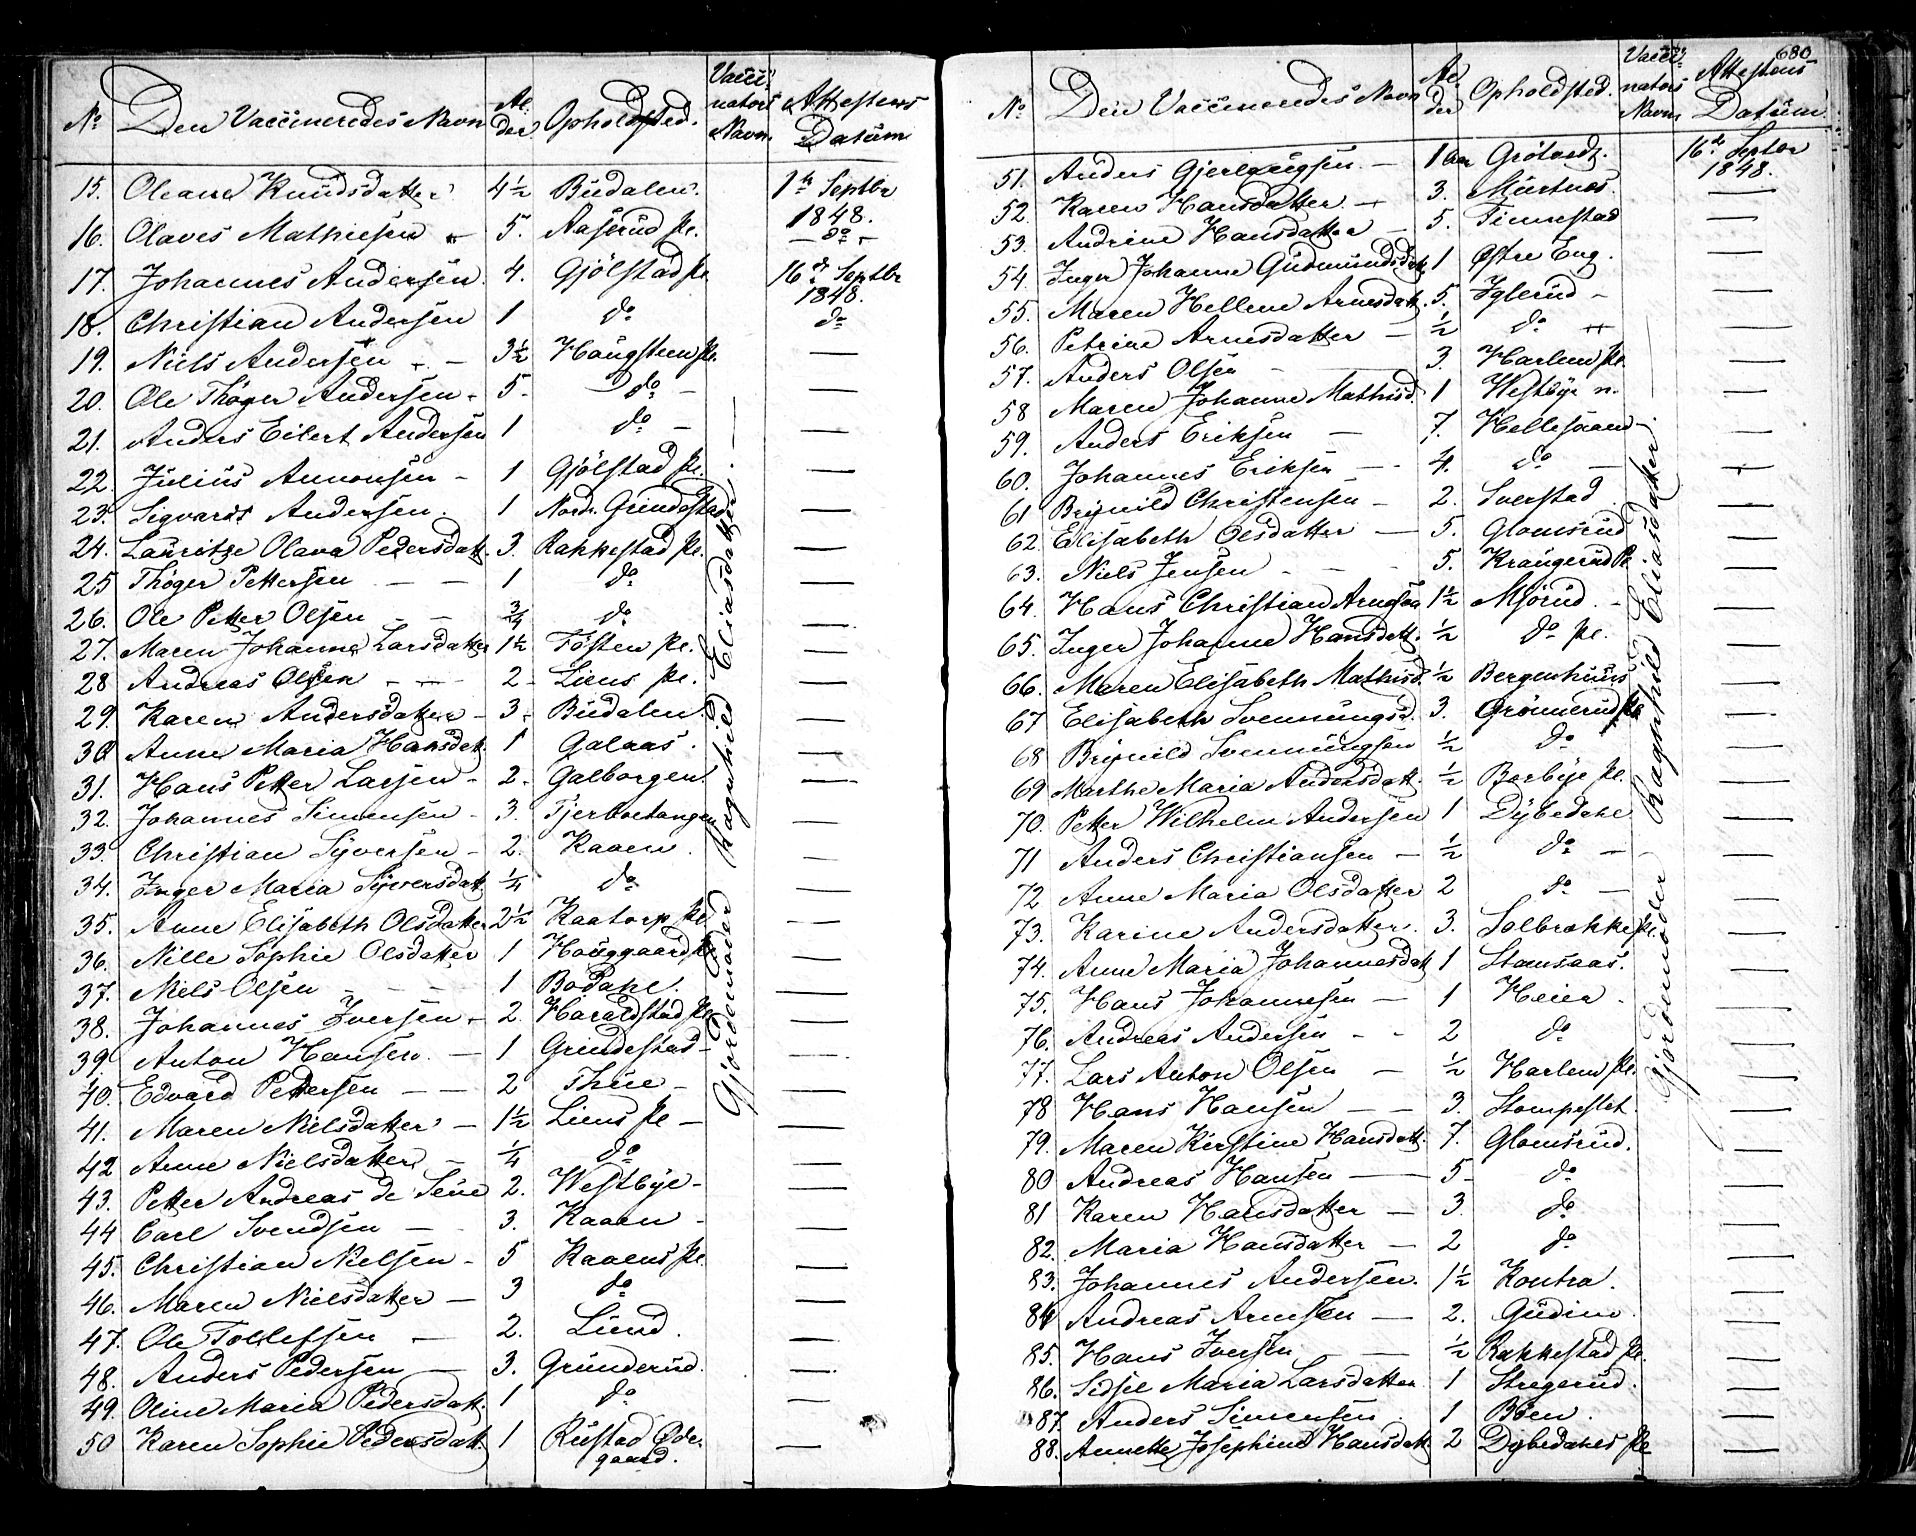 No Den Vaccineredes Navn Al- der Opholdsted. Vacci- nators Navn Attestens Datum
15. Oleane Knudsdatter 4½ Büdalen. 1ste Septbr 1848.
16. Olaves Mathiesen 5. Aaserüd Pl. do
17. Johannes Andersen 4. Gjölstad Pl. 16de Septbr 1848.
18. Christian Andersen 1 do do
19. Niels Andersen 3½ Haugsteen Pl. —
20. Ole Thøger Andersen 5. do —
21. Anders Eilert Andersen 1 do —
22. Julius Amonsen 1 Gjölstad Pl. —
23. Sigvardt Andersen. 1 Nordr. Grindestad —
24. Lauritze Olava Pedersdatt. 3. Rakkestad Pl. —
25 Thøger Pettersen 1 do —
26. Ole Petter Olsen ¾ do —
27. Maren Johanne Larsdatter 1½ Fösten Pl. —
28 Andreas Olsen 2 Liens Pl. —
29. Karen Andersdatter 3. Büdalen. —
30 Anne Maria Hansdatt. 1 Galaas. —
31. Hans Petter Larsen 2. Galborgen. —
32. Johannes Simensen 3. Tjerboetangen —
33. Christian Syversen 2. Kaaen. —
34. Inger Maria Syversdatt. ¼ do —
35. Anne Elisabeth Olsdatter 2½ Kaatorp Pl. —
36. Nille Sophie Olsdatter 1 Houggaard Pl. —
37. Niels Olsen 1 Bodahl. —
38. Johannes Iversen 2. Haraldstad Pl. —
39. Anton Hansen. 1 Grindestad —
40. Edvard Pettersen 2 Thue —
41. Maren Nielsdatter 1½ Liens Pl. —
42 Anne Nielsdatter ¼ do —
43. Petter Andreas de Seue 2. Westbye —
44 Carl Svendsen 3. Kaaen —
45. Christian Nielsen 5 Kaaens Pl. —
46. Maren Nielsdatter 3 do —
47. Ole Tollefsen 2. Lund. —
48. Anders Pedersen 3. Grünerud. —
49. Oline Maria Pedersdatt. 1 do —
50 Karen Sophie Pedersdatt. 1 Rüstad Øde- gaard. —
Gjordemoder Ragnhild Eliasdatter.
680
No Den Vaccineredes Navn Al- der Opholdsted. Vacci- nators Navn Attestens Datum
51. Anders Gjerlaugsen 1 Aar Grötvedt. 16de Septbr 1848.
52. Karen Hansdatter 3. Mürtnes. —
53. Andrine Hansdatter 5. Timestad —
54. Inger Johanne Gudmundsdatt. 1 Østre Eng. —
55. Maren Hellene Arnesdatt. 5. Iglerud —
56. Petrine Arnesdatter ½ do —
57. Anders Olsen 3. Harlem Pl. —
58 Maren Johanne Mathisd. 1 Westbye n. —
59. Anders Eriksen 7. Hellesaaen —
60. Johannes Eriksen 4. do —
61 Brijnild Christensen 2. Sverstad —
62. Elisabeth Olsdatter 5. Glomsrud —
63. Niels Jensen 5. Krangerud Pl. —
64. Hans Christian Arnesen 1½ Mjörud. —
65. Inger Johanne Hansdatt. ½ do Pl. —
66. Maren Elisabeth Mathisd. ½ Bergenhuus —
67 Elisabeth Svenningsd. 3. Grönnerud Pl. —
68 Brijnild Svenningsen ½ do —
69 Marthe Maria Andersdatt. ½ Berbye Pl. —
70. Petter Wilhelm Andersen 1 Dybedahl —
71 Anders Christiansen ½ do —
72 Anne Maria Olsdatter 2 do —
73. Karine Andersdatter. 3. Solbrekke Pl. —
74. Anne Maria Johannesdatt. 1 Stomsaas. —
75. Hans Johannesen 1 Heier. —
76. Andreas Andersen 2 do —
77. Lars Anton Olsen ½ Harlem Pl. —
78 Hans Hansen 3. Stompeslet. —
79. Maren Kirstine Hansdatt. 7. Glomsrud. —
80 Andreas Hansen 5 do —
81 Karen Hansdatter 3. do —
82. Maria Hansdatter 2 do —
83. Johannes Andersen. 1½ Kontra. —
84 Andreas Arnesen 2. Gudim. —
85. Hans Iversen ½ Rakkestad Pl. —
86. Sidsel Maria Larsdatter 1 Stregerud. —
87. Anders Simensen 1 Böen. —
88. Annette Josephine Hansdatt. 2 Dybedahls Pl. —
Gjordemoder Ragnhild Eliasdatter.